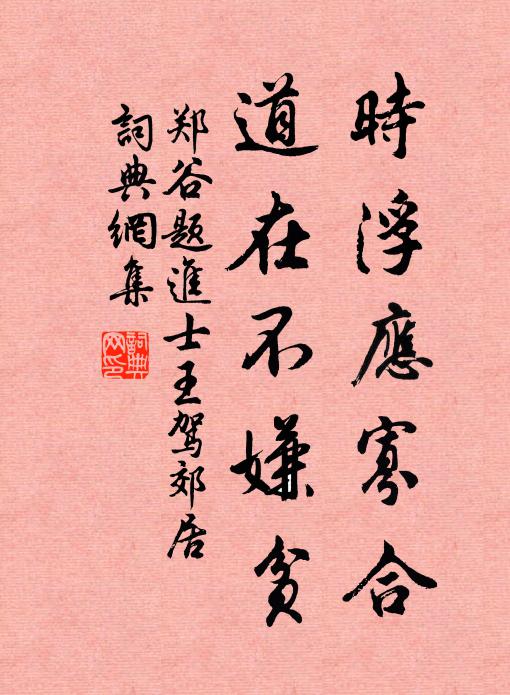 時浮應寡合
道在不嫌貧
郑谷题進士王驾郊居
詞典網集
詞典
网印